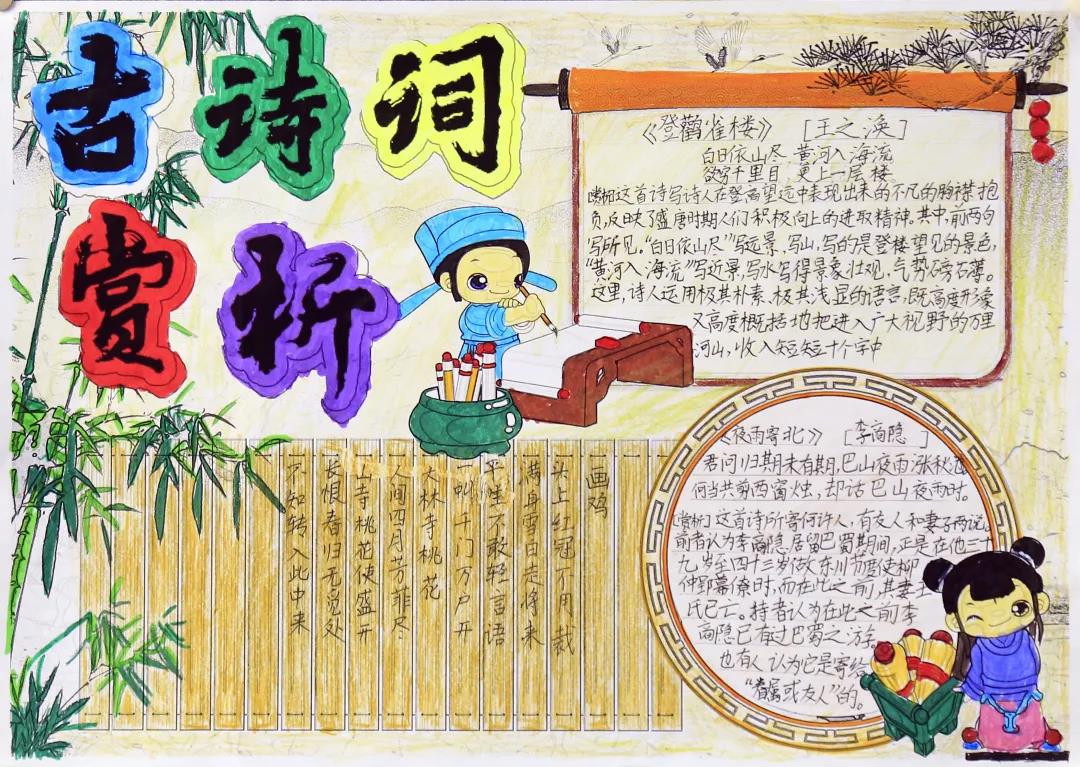 古诗词
赏析
《登鸛雀楼》 [王之涣]
白日依山尽 黄河入海流
欲穷千里目，更上一层楼
赏析这首诗写诗人在登高望远中表现出来的不凡的胸襟抱
负，反映了盛唐时期人们积极向上的进取精神。其中，前两句
写所见。“白日依山尽”写远景，写山，写的是登楼望见的景色，
“黄河入海流”写近景，写水写得景象壮观，气势磅礴。
这里，诗人运用极其朴素、极其浅显的语言，既高度形象
又高度概括地把进入广大视野的万里
河山，收入短短十个字中
画鸡
头上红冠不用裁
满身雪白走将来
平生不敢轻言语
一叫千门万户开
大林寺桃花
人间四月芳菲尽
山寺桃花使盛开
长恨春归无觅处
不知转入此中来
《夜雨寄北》 [李商隐]
君问归期未有期，巴山夜雨涨秋池
何当共剪西窗烛，却话巴山夜雨时。
[赏析]这首诗所寄何许人，有友人和妻子两说。
前者认为李商隐居留巴蜀期间，正是在他三十
九岁至四十三岁做东川节度使柳
仲郢幕僚时，而在此之前，其妻王
氏已亡。持者认为在此之前李
商隐已有过巴蜀之游。
也有人认为它是寄给
“眷属或友人”的。